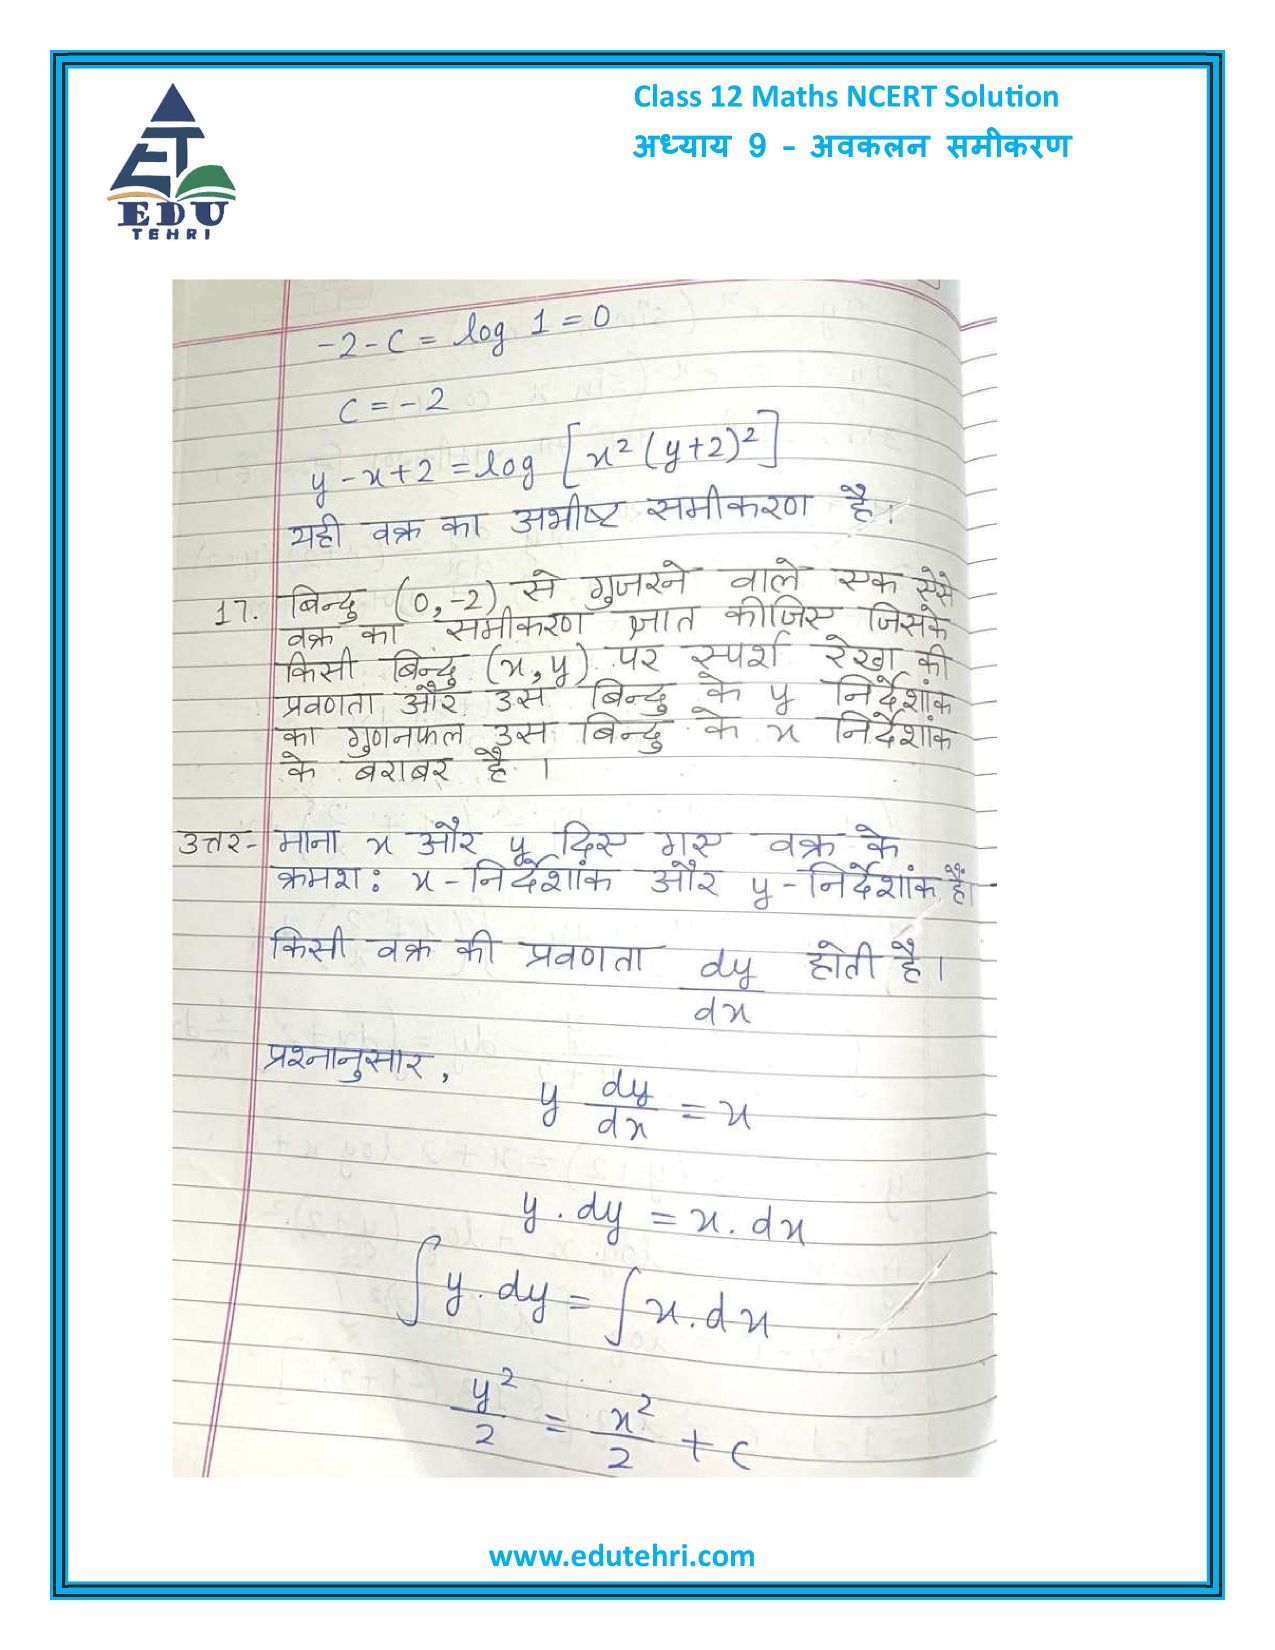 Class 12 Maths NCERT Solution
अध्याय 9 – अवकलन समीकरण
EDU
TEHRI
-2-C = log 1 = 0
C = -2
y-x+2 = log [x²(y+2)²]
यही वक्र का अभीष्ट समीकरण है।
17. बिन्दु (0,-2) से गुजरने वाले एक ऐसे
वक्र का समीकरण ज्ञात कीजिए जिसके
किसी बिन्दु (x,y) पर स्पर्श रेखा की
प्रवणता और उस बिन्दु के y निर्देशांक
का गुणनफल उस बिन्दु के x निर्देशांक
के बराबर है।
उत्तर- माना x और y दिए गए वक्र के
क्रमश: x-निर्देशांक और y-निर्देशांक हैं।
किसी वक्र की प्रवणता dy/dx होती है।
प्रश्नानुसार,
y dy/dx = x
y.dy = x.dx
∫y.dy = ∫x.dx
y²/2 = x²/2 + C
www.edutehri.com